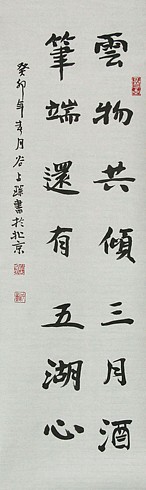 雲物共傾三月酒
筆端還有五湖心
癸卯年春月谷上孫書於北京